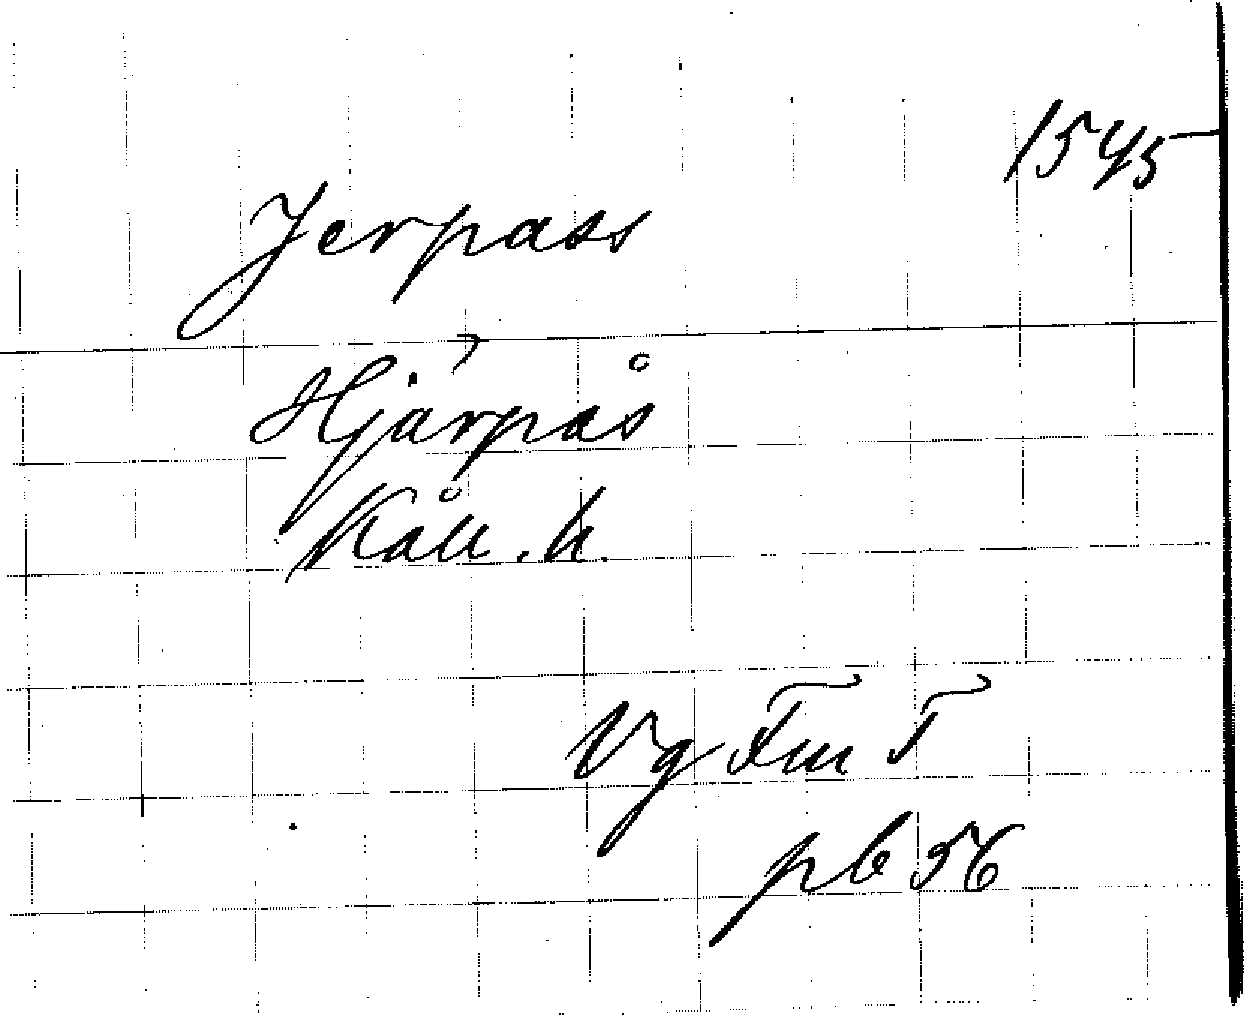 1545
Jerpass
Hjärpås
Kåll. h.
Vg Fm T
pb 56